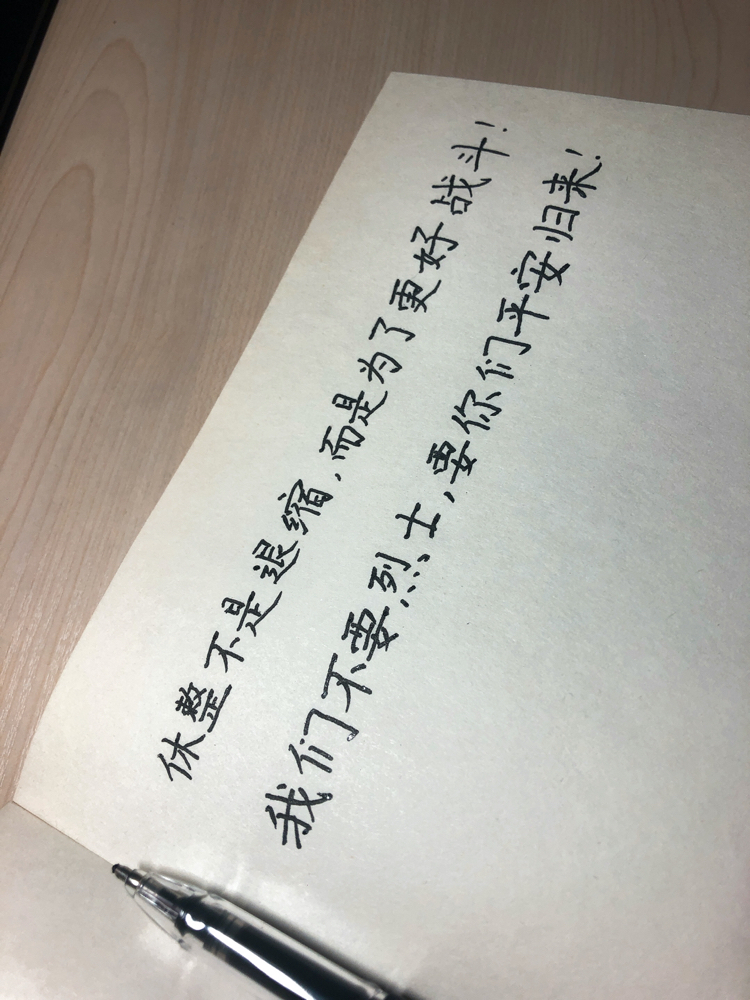 休整不是退缩,而是为了更好战斗!
我们不要烈士,要你们平安归来!